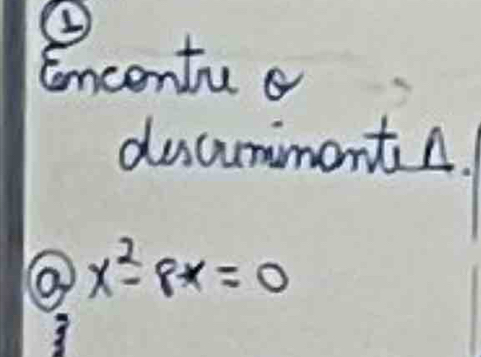 ①
Encontre o
discriminante Δ.
ⓐ x² - 8x = 0